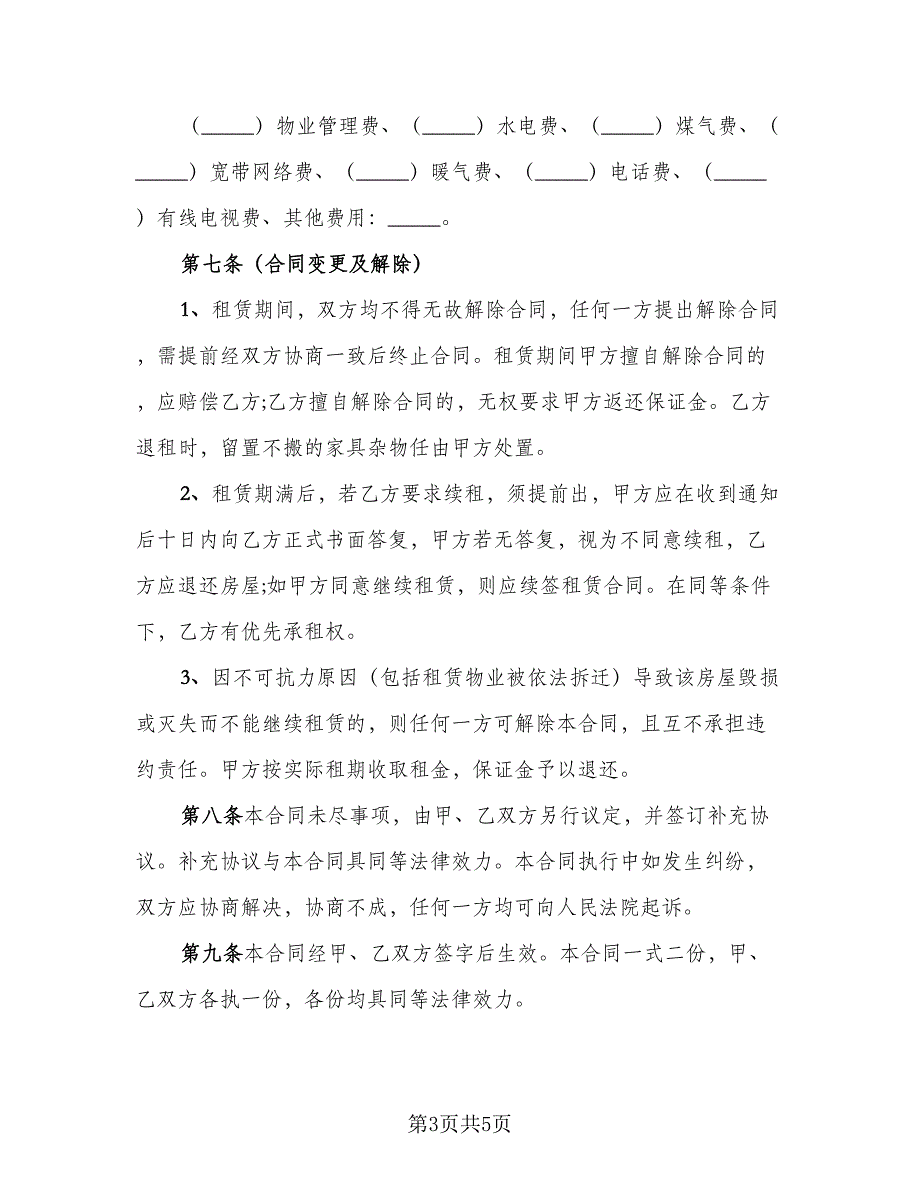 （_____）物业管理费、（_____）水电费、（_____）煤气费、（
_____）宽带网络费、（_____）暖气费、（_____）电话费、（_____
）有线电视费、其他费用：_____。
第七条（合同变更及解除）
1、租赁期间，双方均不得无故解除合同，任何一方提出解除合同
，需提前经双方协商一致后终止合同。租赁期间甲方擅自解除合同的
，应赔偿乙方;乙方擅自解除合同的，无权要求甲方返还保证金。乙方
退租时，留置不搬的家具杂物任由甲方处置。
2、租赁期满后，若乙方要求续租，须提前出，甲方应在收到通知
后十日内向乙方正式书面答复，甲方若无答复，视为不同意续租，乙
方应退还房屋;如甲方同意继续租赁，则应续签租赁合同。在同等条件
下，乙方有优先承租权。
3、因不可抗力原因（包括租赁物业被依法拆迁）导致该房屋毁损
或灭失而不能继续租赁的，则任何一方可解除本合同，且互不承担违
约责任。甲方按实际租期收取租金，保证金予以退还。
第八条本合同未尽事项，由甲、乙双方另行议定，并签订补充协
议。补充协议与本合同具同等法律效力。本合同执行中如发生纠纷，
双方应协商解决，协商不成，任何一方均可向人民法院起诉。
第九条本合同经甲、乙双方签字后生效。本合同一式二份，甲、
乙双方各执一份，各份均具同等法律效力。
第3页共5页